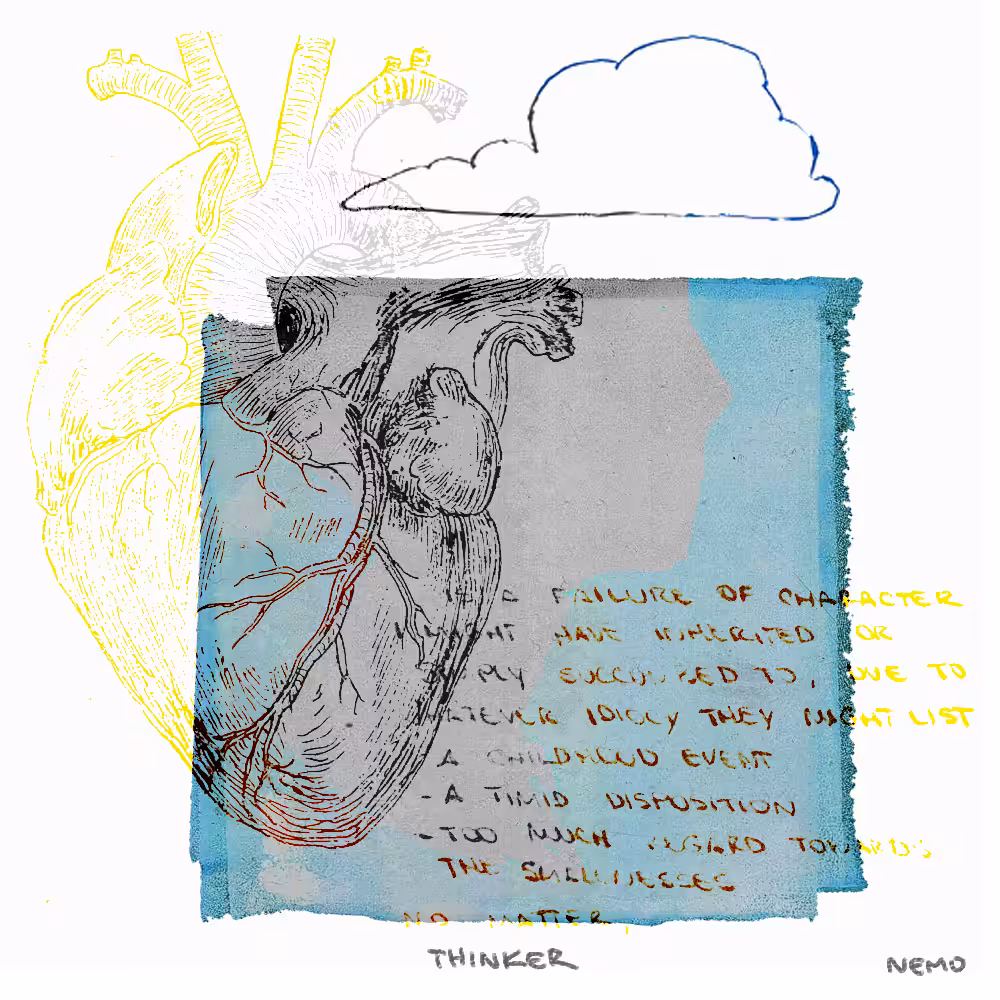 A FAILURE OF CHARACTER
HAVE INHERITED OR
SUCCUMBED TO, DUE TO
WHATEVER IDIOCY THEY MIGHT LIST
A CHILDHOOD EVENT
- A TIMID DISPOSITION
- TOO MUCH REGARD TOWARDS
THE
NO MATTER,
THINKER
NEMO